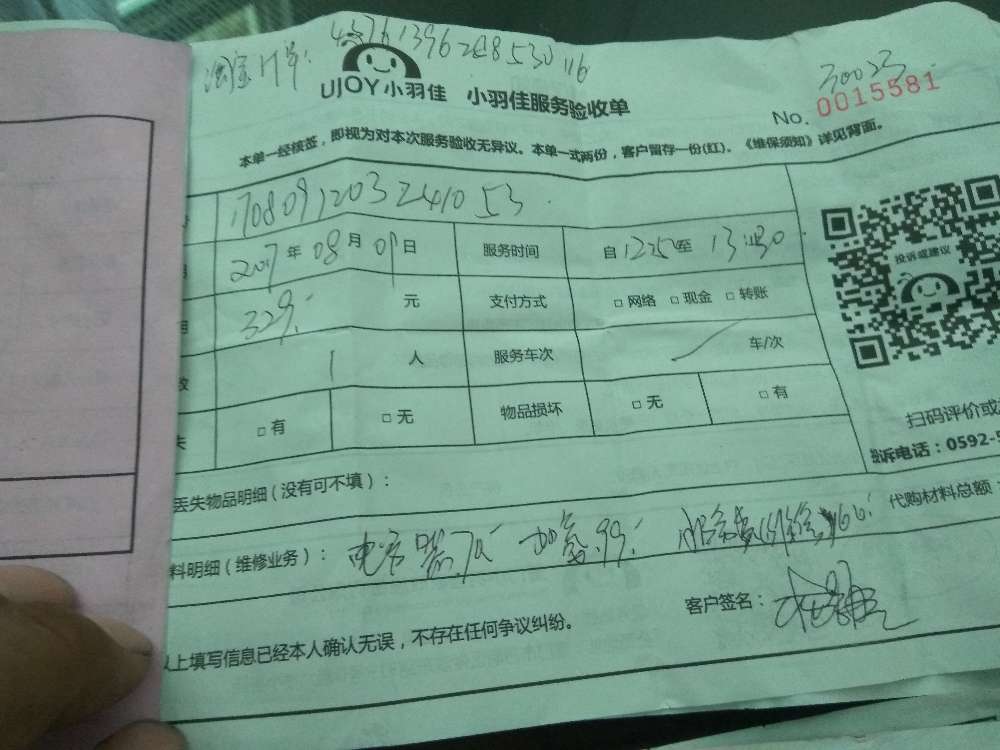 淘宝订单: 43761396288530116
UJOY小羽佳 小羽佳服务验收单
30023
No. 0015581
本单一经核签，即视为对本次服务验收无异议。本单一式两份，客户留存一份(红)。《维保须知》详见背面。
1708091203241053
2017年08月09日 服务时间 自1252至13:30
329. 元 支付方式 □ 网络 □ 现金 □ 转账
1 人 服务车次 车/次
□ 有 □ 无 物品损坏 □ 无 □ 有
投诉或建议
扫码评价或
诉电话：0592-
丢失物品明细（没有可不填）：
料明细（维修业务）： 电容器.70 加氟.99. 服务费(维修)160. 代购材料总额
客户签名：
以上填写信息已经本人确认无误，不存在任何争议纠纷。